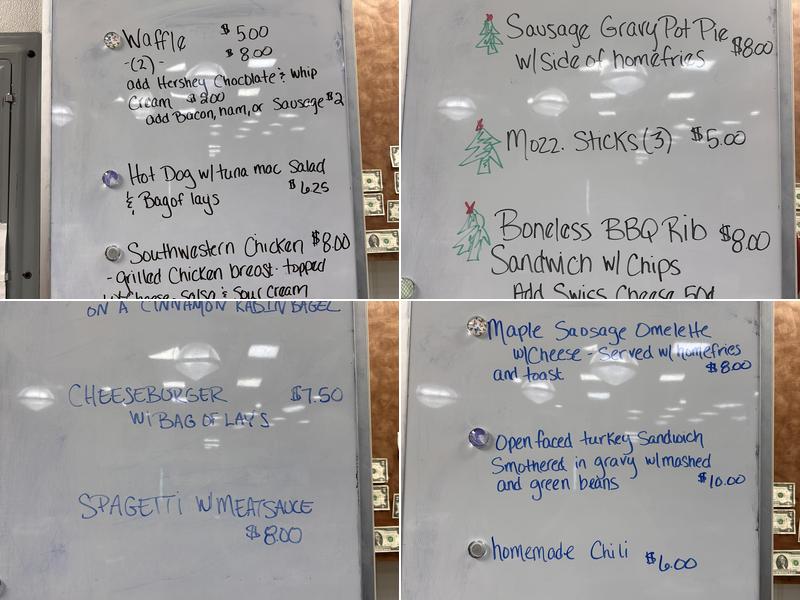 Waffle $5.00
-(2)- $8.00
add Hershey Chocolate & whip
Cream $2.00
add Bacon, ham, or Sausage $2
Hot Dog w/tuna mac Salad
& Bag of lays $6.25
Southwestern Chicken $8.00
- grilled Chicken breast - topped
w/Cheese - salsa & Sour cream
Sausage Gravy Pot Pie $8.00
w/side of homefries
Mozz. Sticks (3) $5.00
Boneless BBQ Rib $8.00
Sandwich w/ Chips
Add Swiss Cheese 50¢
ON A CINNAMON RAISIN BAGEL
CHEESEBURGER $7.50
W/BAG OF LAYS
SPAGETTI W/MEATSAUCE
$8.00
Maple Sausage Omelette
w/Cheese - Served w/homefries
and toast $8.00
Open faced turkey Sandwich
Smothered in gravy w/mashed
and green beans $10.00
homemade Chili $6.00